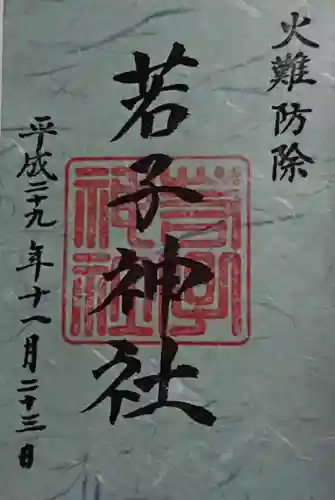 火難防除
若子神社
若子
神社
平成二十九年十一月二十三日